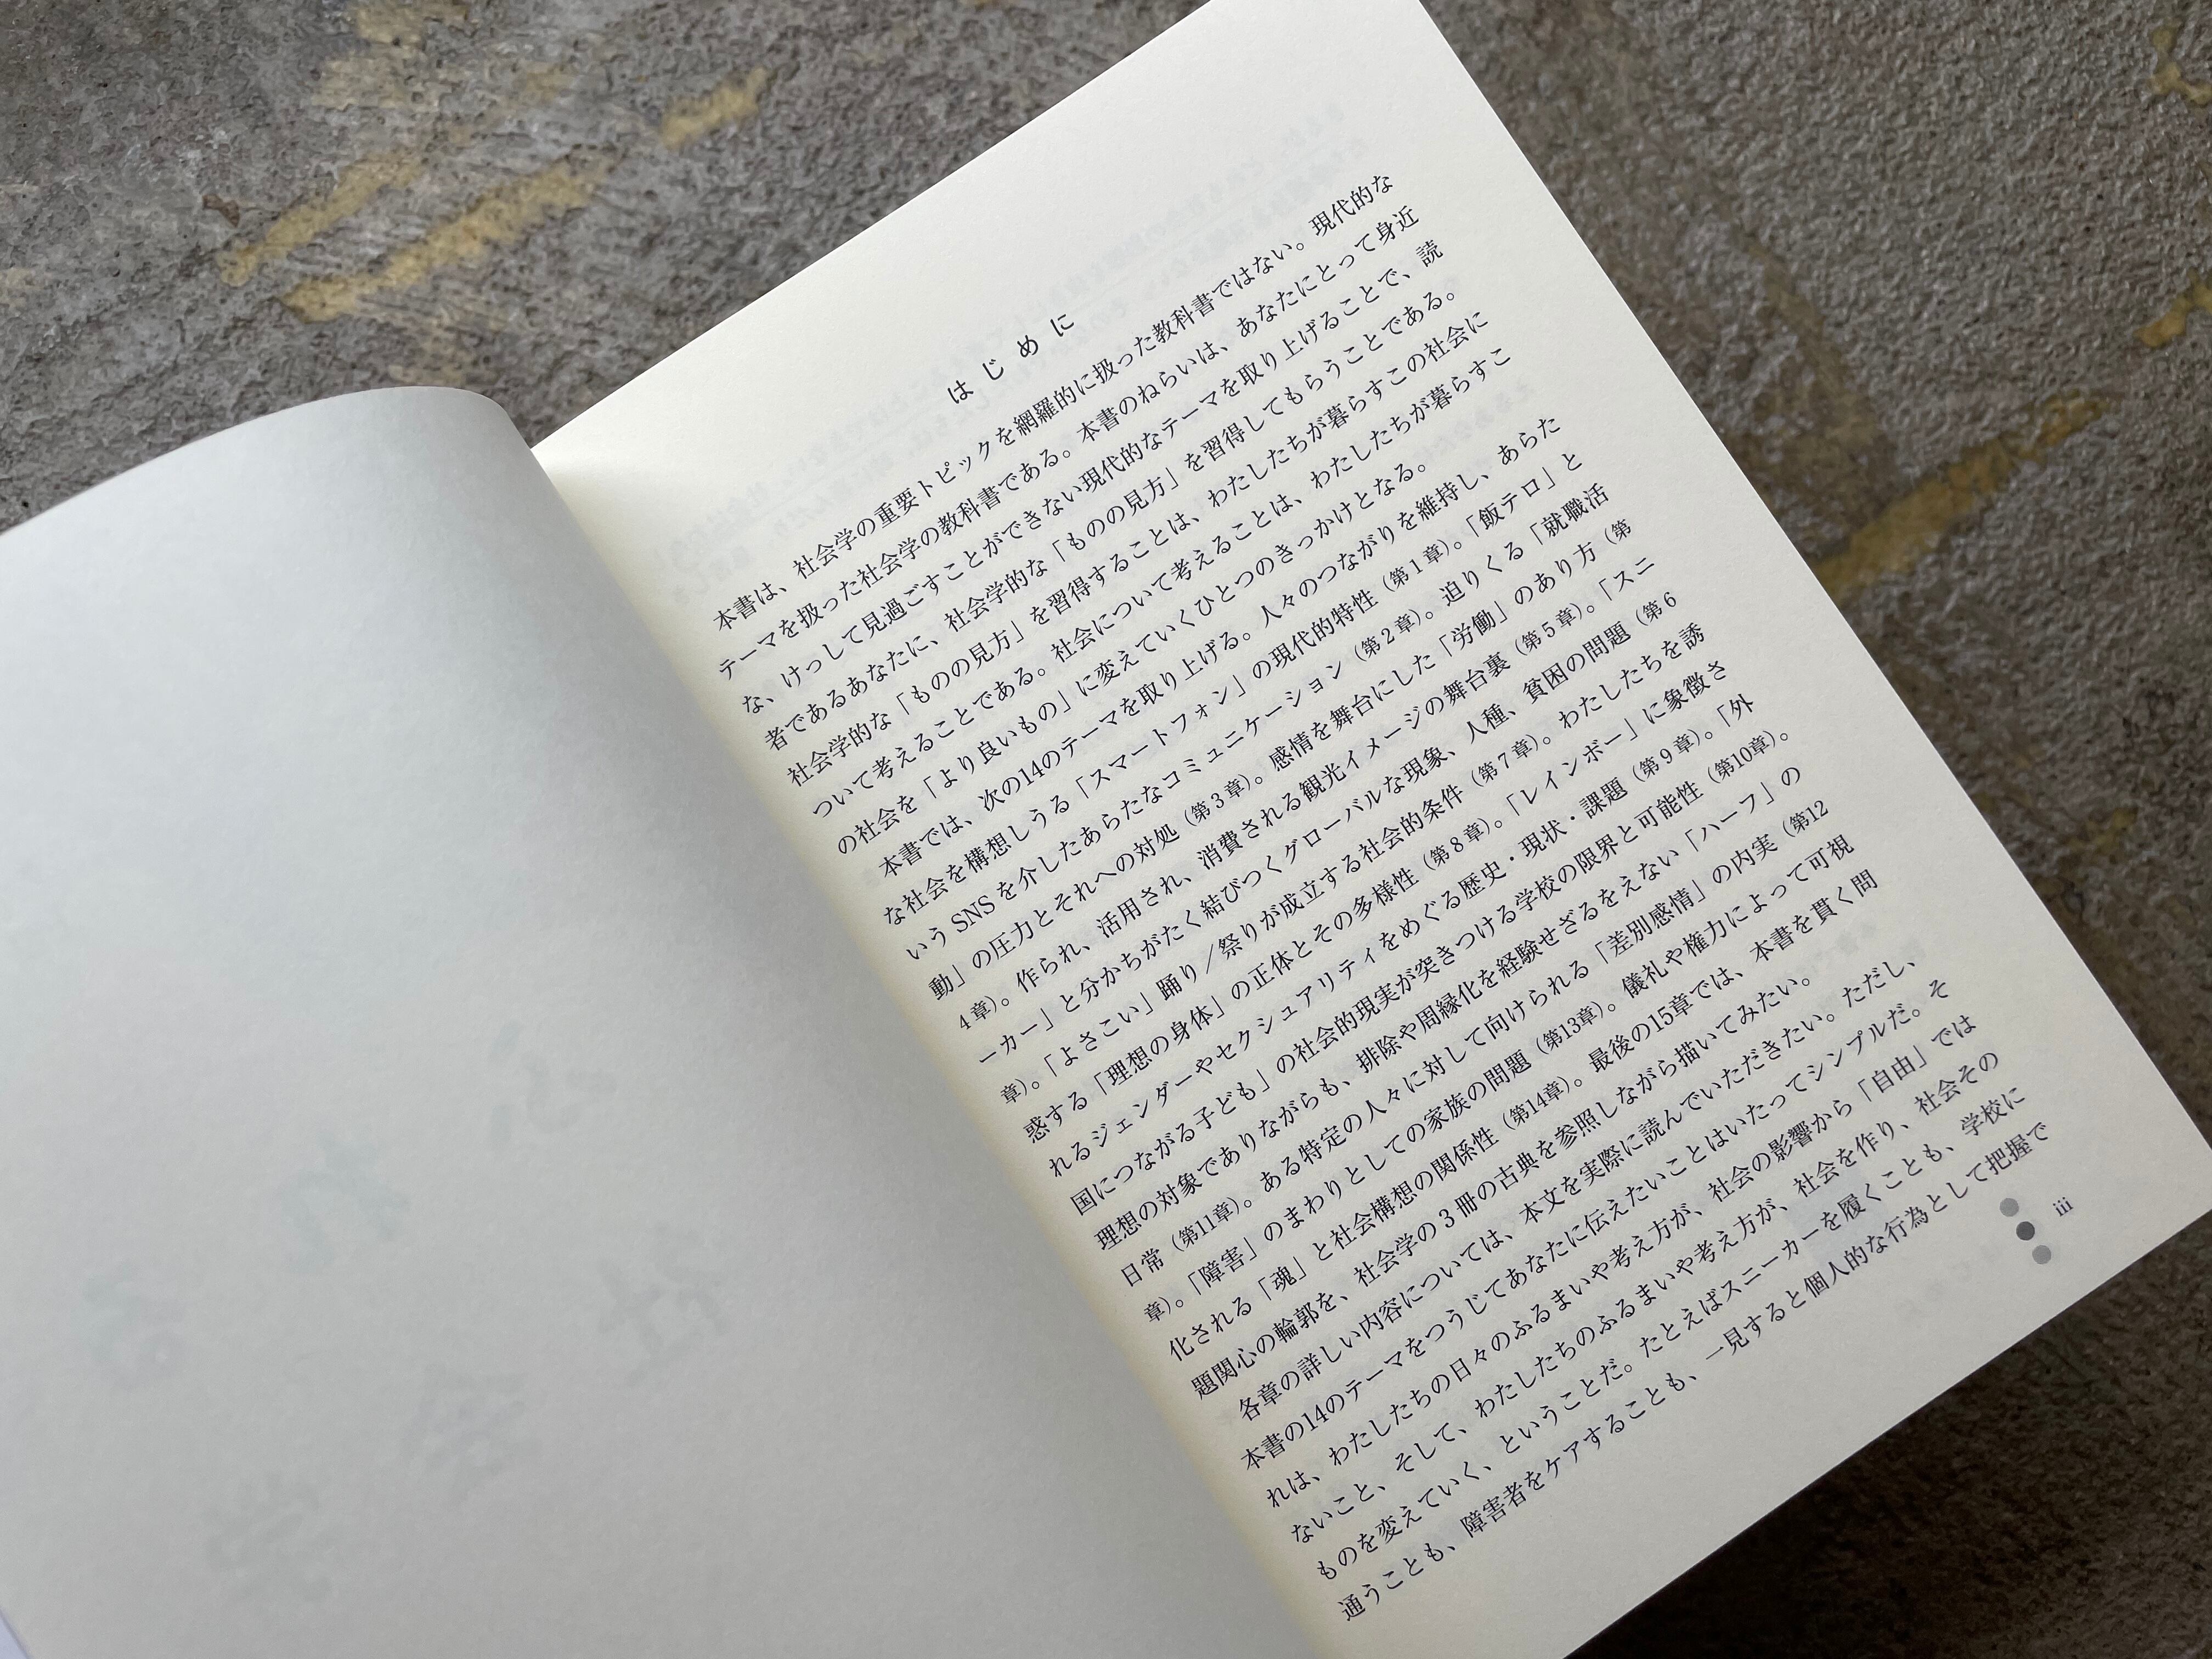 はじめに
本書は、社会学の重要トピックを網羅的に扱った教科書ではない。現代的な
テーマを扱った社会学の教科書である。本書のねらいは、あなたにとって身近
な、けっして見過ごすことができない現代的なテーマを取り上げることで、読
者であるあなたに、社会学的な「ものの見方」を習得してもらうことである。
社会学的な「ものの見方」を習得することは、わたしたちが暮らすこの社会に
ついて考えることである。社会について考えることは、わたしたちが暮らすこ
の社会を「より良いもの」に変えていくひとつのきっかけとなる。
本書では、次の14のテーマを取り上げる。人々のつながりを維持し、あらた
な社会を構想しうる「スマートフォン」の現代的特性（第1章）。「飯テロ」と
いう SNS を介したあらたなコミュニケーション（第2章）。迫りくる「就職活
動」の圧力とそれへの対処（第3章）。感情を舞台にした「労働」のあり方（第
4章）。作られ、活用され、消費される観光イメージの舞台裏（第5章）。「スニ
ーカー」と分かちがたく結びつくグローバルな現象、人種、貧困の問題（第6
章）。「よさこい」踊り／祭りが成立する社会的条件（第7章）。わたしたちを誘
惑する「理想の身体」の正体とその多様性（第8章）。「レインボー」に象徴さ
れるジェンダーやセクシュアリティをめぐる歴史・現状・課題（第9章）。「外
国につながる子ども」の社会的現実が突きつける学校の限界と可能性（第10章）。
理想の対象でありながらも、排除や周縁化を経験せざるをえない「ハーフ」の
日常（第11章）。ある特定の人々に対して向けられる「差別感情」の内実（第12
章）。「障害」のまわりとしての家族の問題（第13章）。儀礼や権力によって可視
化される「魂」と社会構想の関係性（第14章）。最後の15章では、本書を貫く問
題関心の輪郭を、社会学の3冊の古典を参照しながら描いてみたい。
各章の詳しい内容については、本文を実際に読んでいただきたい。ただし、
本書の14のテーマをつうじてあなたに伝えたいことはいたってシンプルだ。そ
れは、わたしたちの日々のふるまいや考え方が、社会の影響から「自由」では
ないこと、そして、わたしたちのふるまいや考え方が、社会を作り、社会その
ものを変えていく、ということだ。たとえばスニーカーを履くことも、学校に
通うことも、障害者をケアすることも、一見すると個人的な行為として把握で
iii